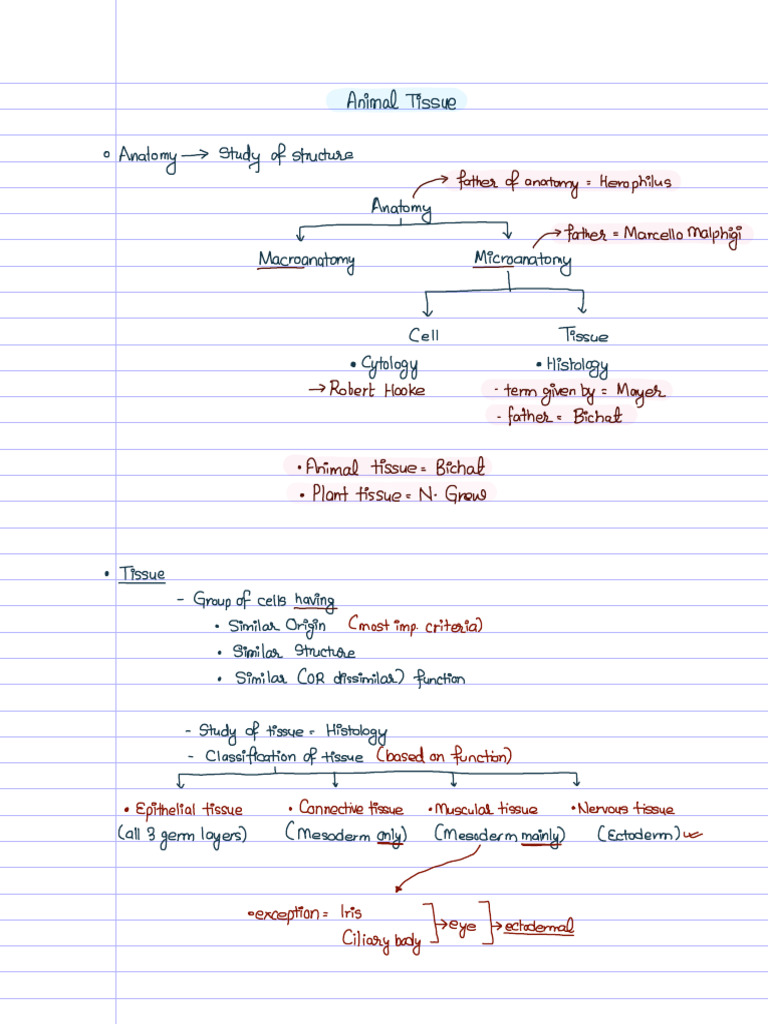 Animal Tissue
○ Anatomy → Study of structure
father of anatomy = Herophilus
Anatomy
father = Marcello Malphigi
Macroanatomy Microanatomy
Cell Tissue
• Cytology • Histology
→ Robert Hooke - term given by = Mayer
- father = Bichat
• Animal tissue = Bichat
• Plant tissue = N. Grew
• Tissue
- Group of cells having
• Similar Origin (most imp. criteria)
• Similar Structure
• Similar (OR dissimilar) function
- Study of tissue = Histology
- Classification of tissue (based on function)
• Epithelial tissue • Connective tissue • Muscular tissue • Nervous tissue
(all 3 germ layers) (Mesoderm only) (Mesoderm mainly) (Ectoderm)
• exception = Iris
Ciliary body → eye → ectodermal